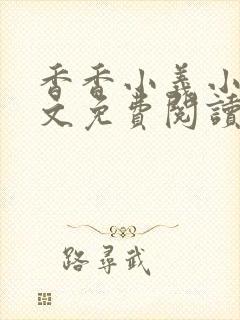 香香小義小
文免費閱讀
路尋武